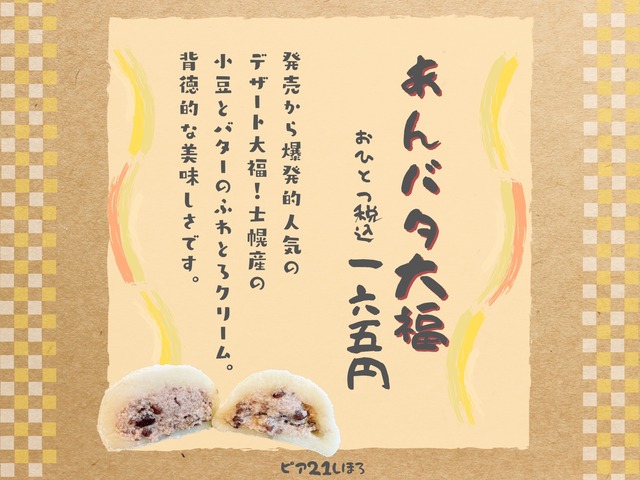 あんバタ大福
おひとつ税込
一六五円
発売から爆発的人気の
デザート大福！士幌産の
小豆とバターのふわとろクリーム。
背徳的な美味しさです。
ピア21しほろ